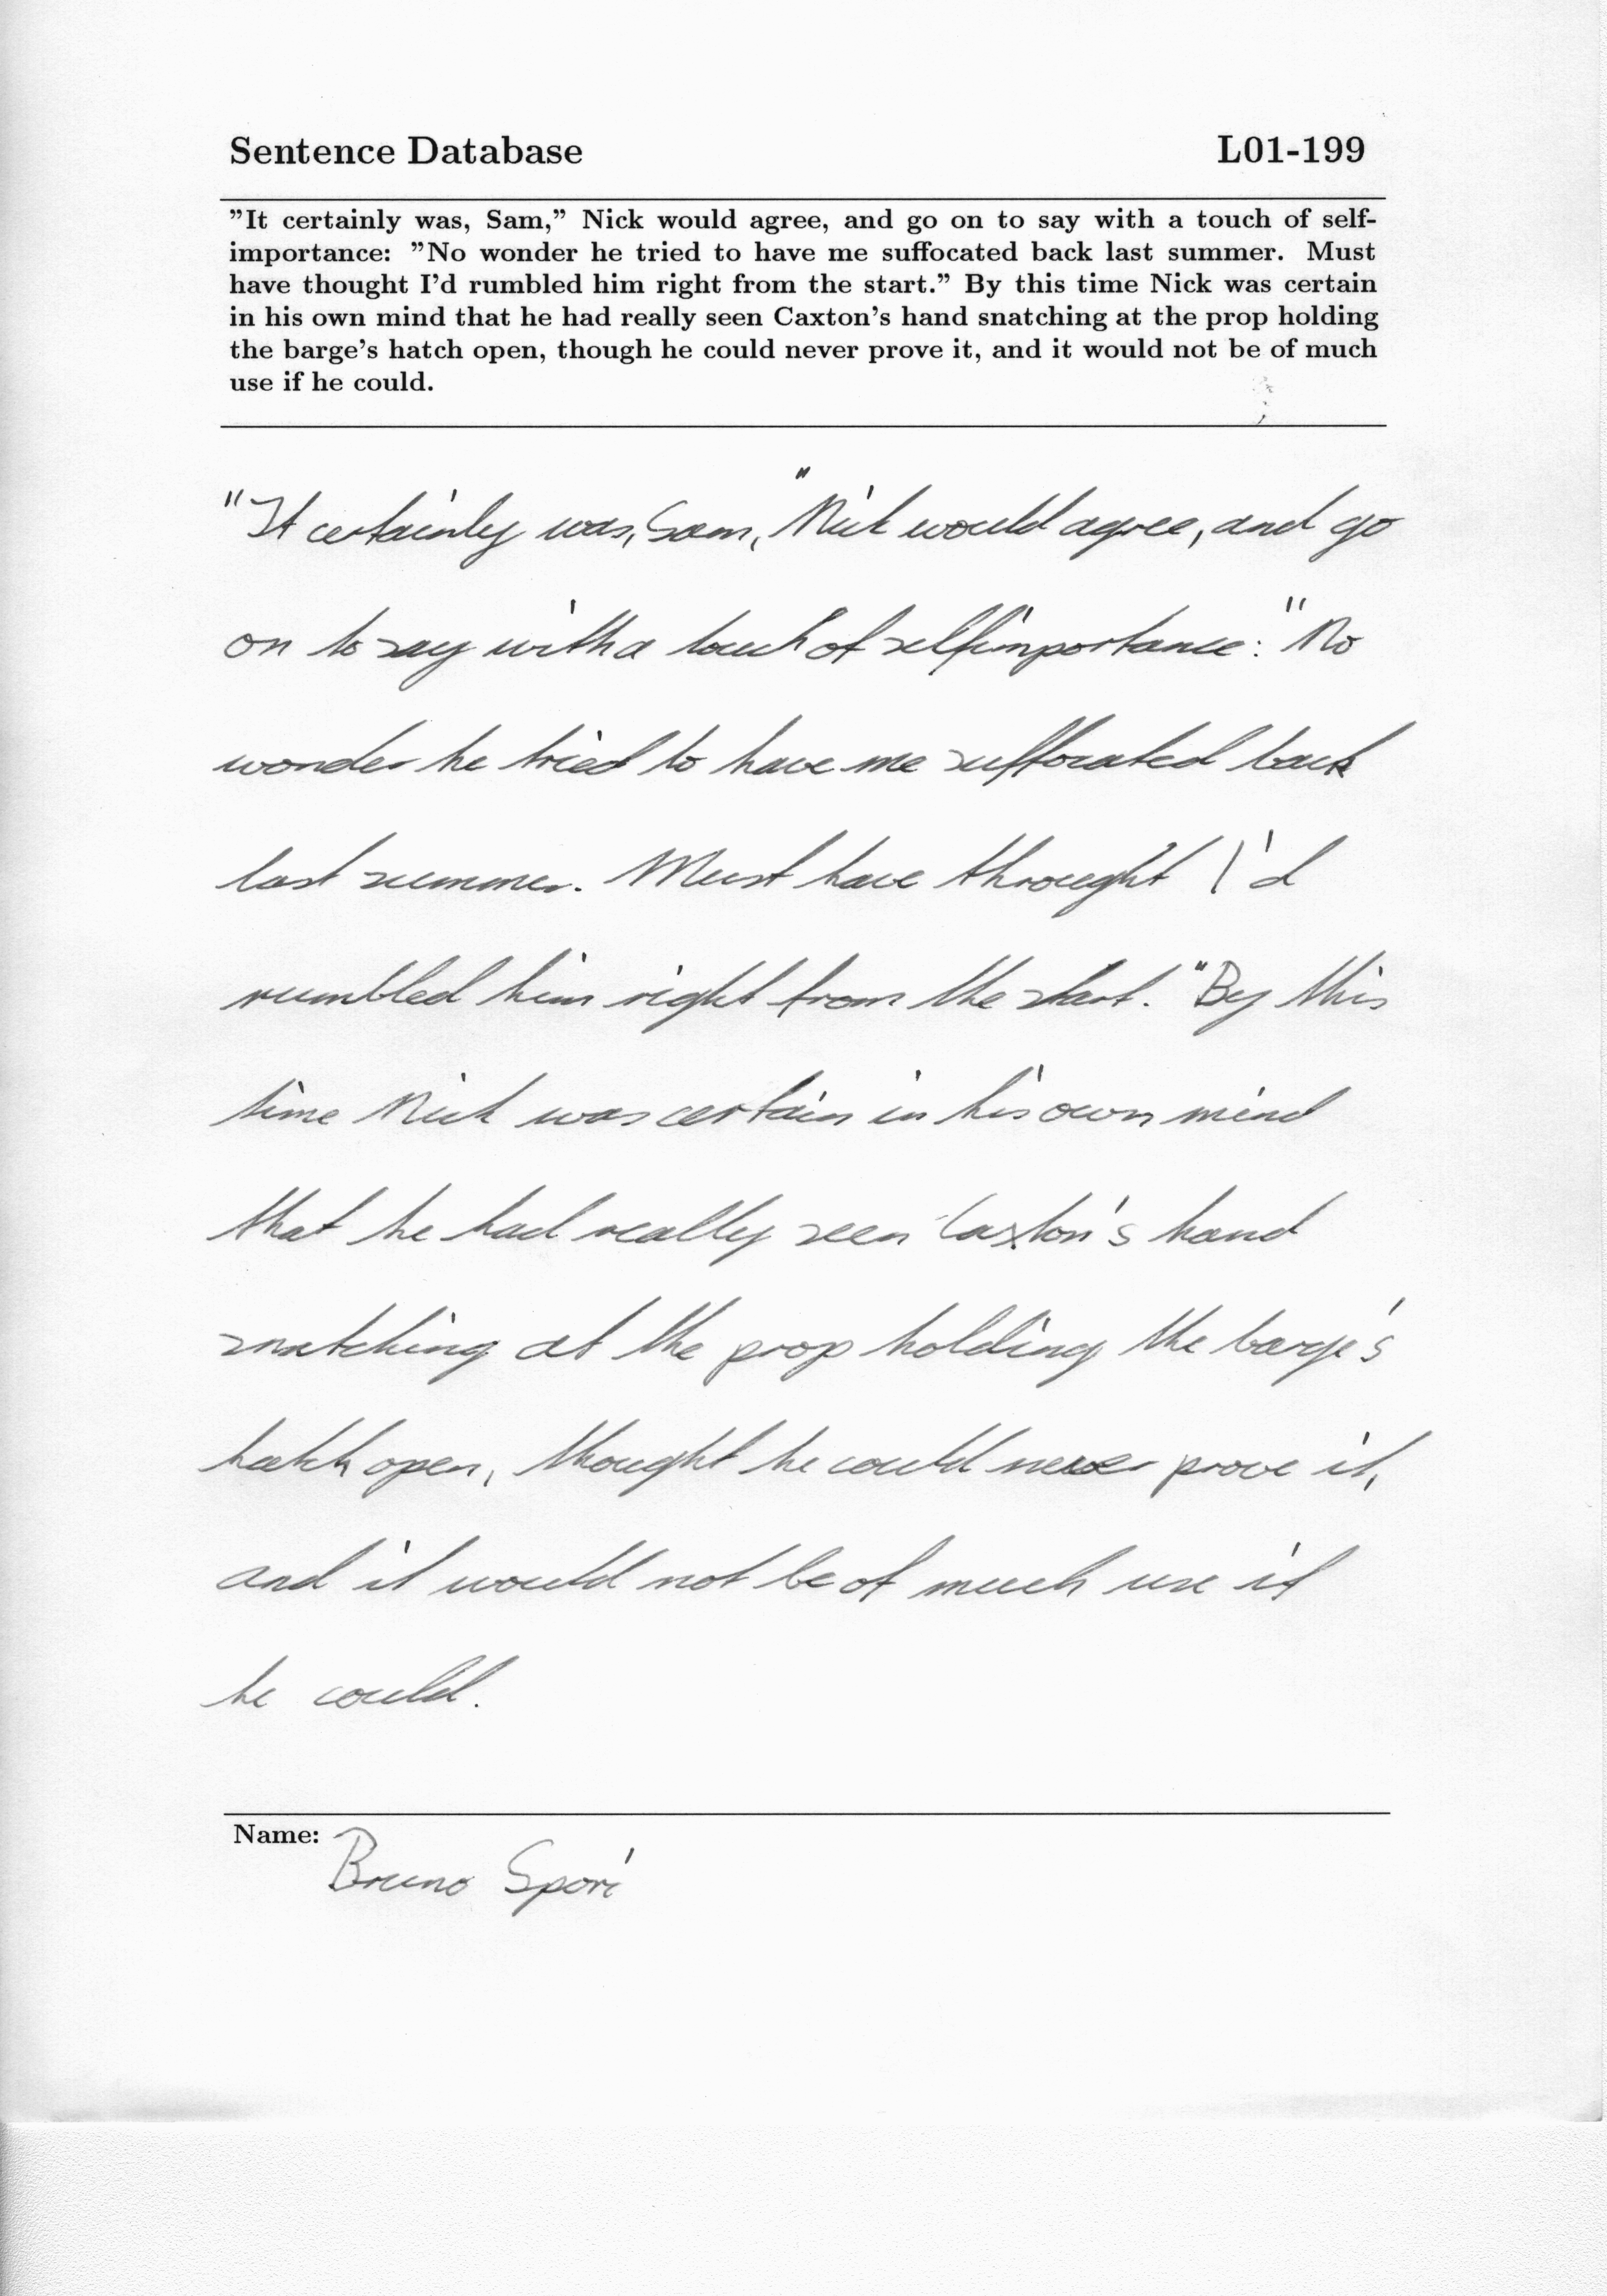 Sentence Database L01-199
”It certainly was, Sam,” Nick would agree, and go on to say with a touch of self-
importance: ”No wonder he tried to have me suffocated back last summer. Must
have thought I’d rumbled him right from the start.” By this time Nick was certain
in his own mind that he had really seen Caxton’s hand snatching at the prop holding
the barge’s hatch open, though he could never prove it, and it would not be of much
use if he could.
"It certainly was, Sam," Nick would agree, and go
on to say with a touch of selfimportance: "No
wonder he tried to have me suffocated back
last summer. Must have throught I'd
rumbled him right from the start." By this
time Nick was certain in his own mind
that he had really seen Caxton's hand
snatching at the prop holding the barge's
hatch open, thought he could never prove it,
and it would not be of much use if
he could.
Name:
Bruno Spori